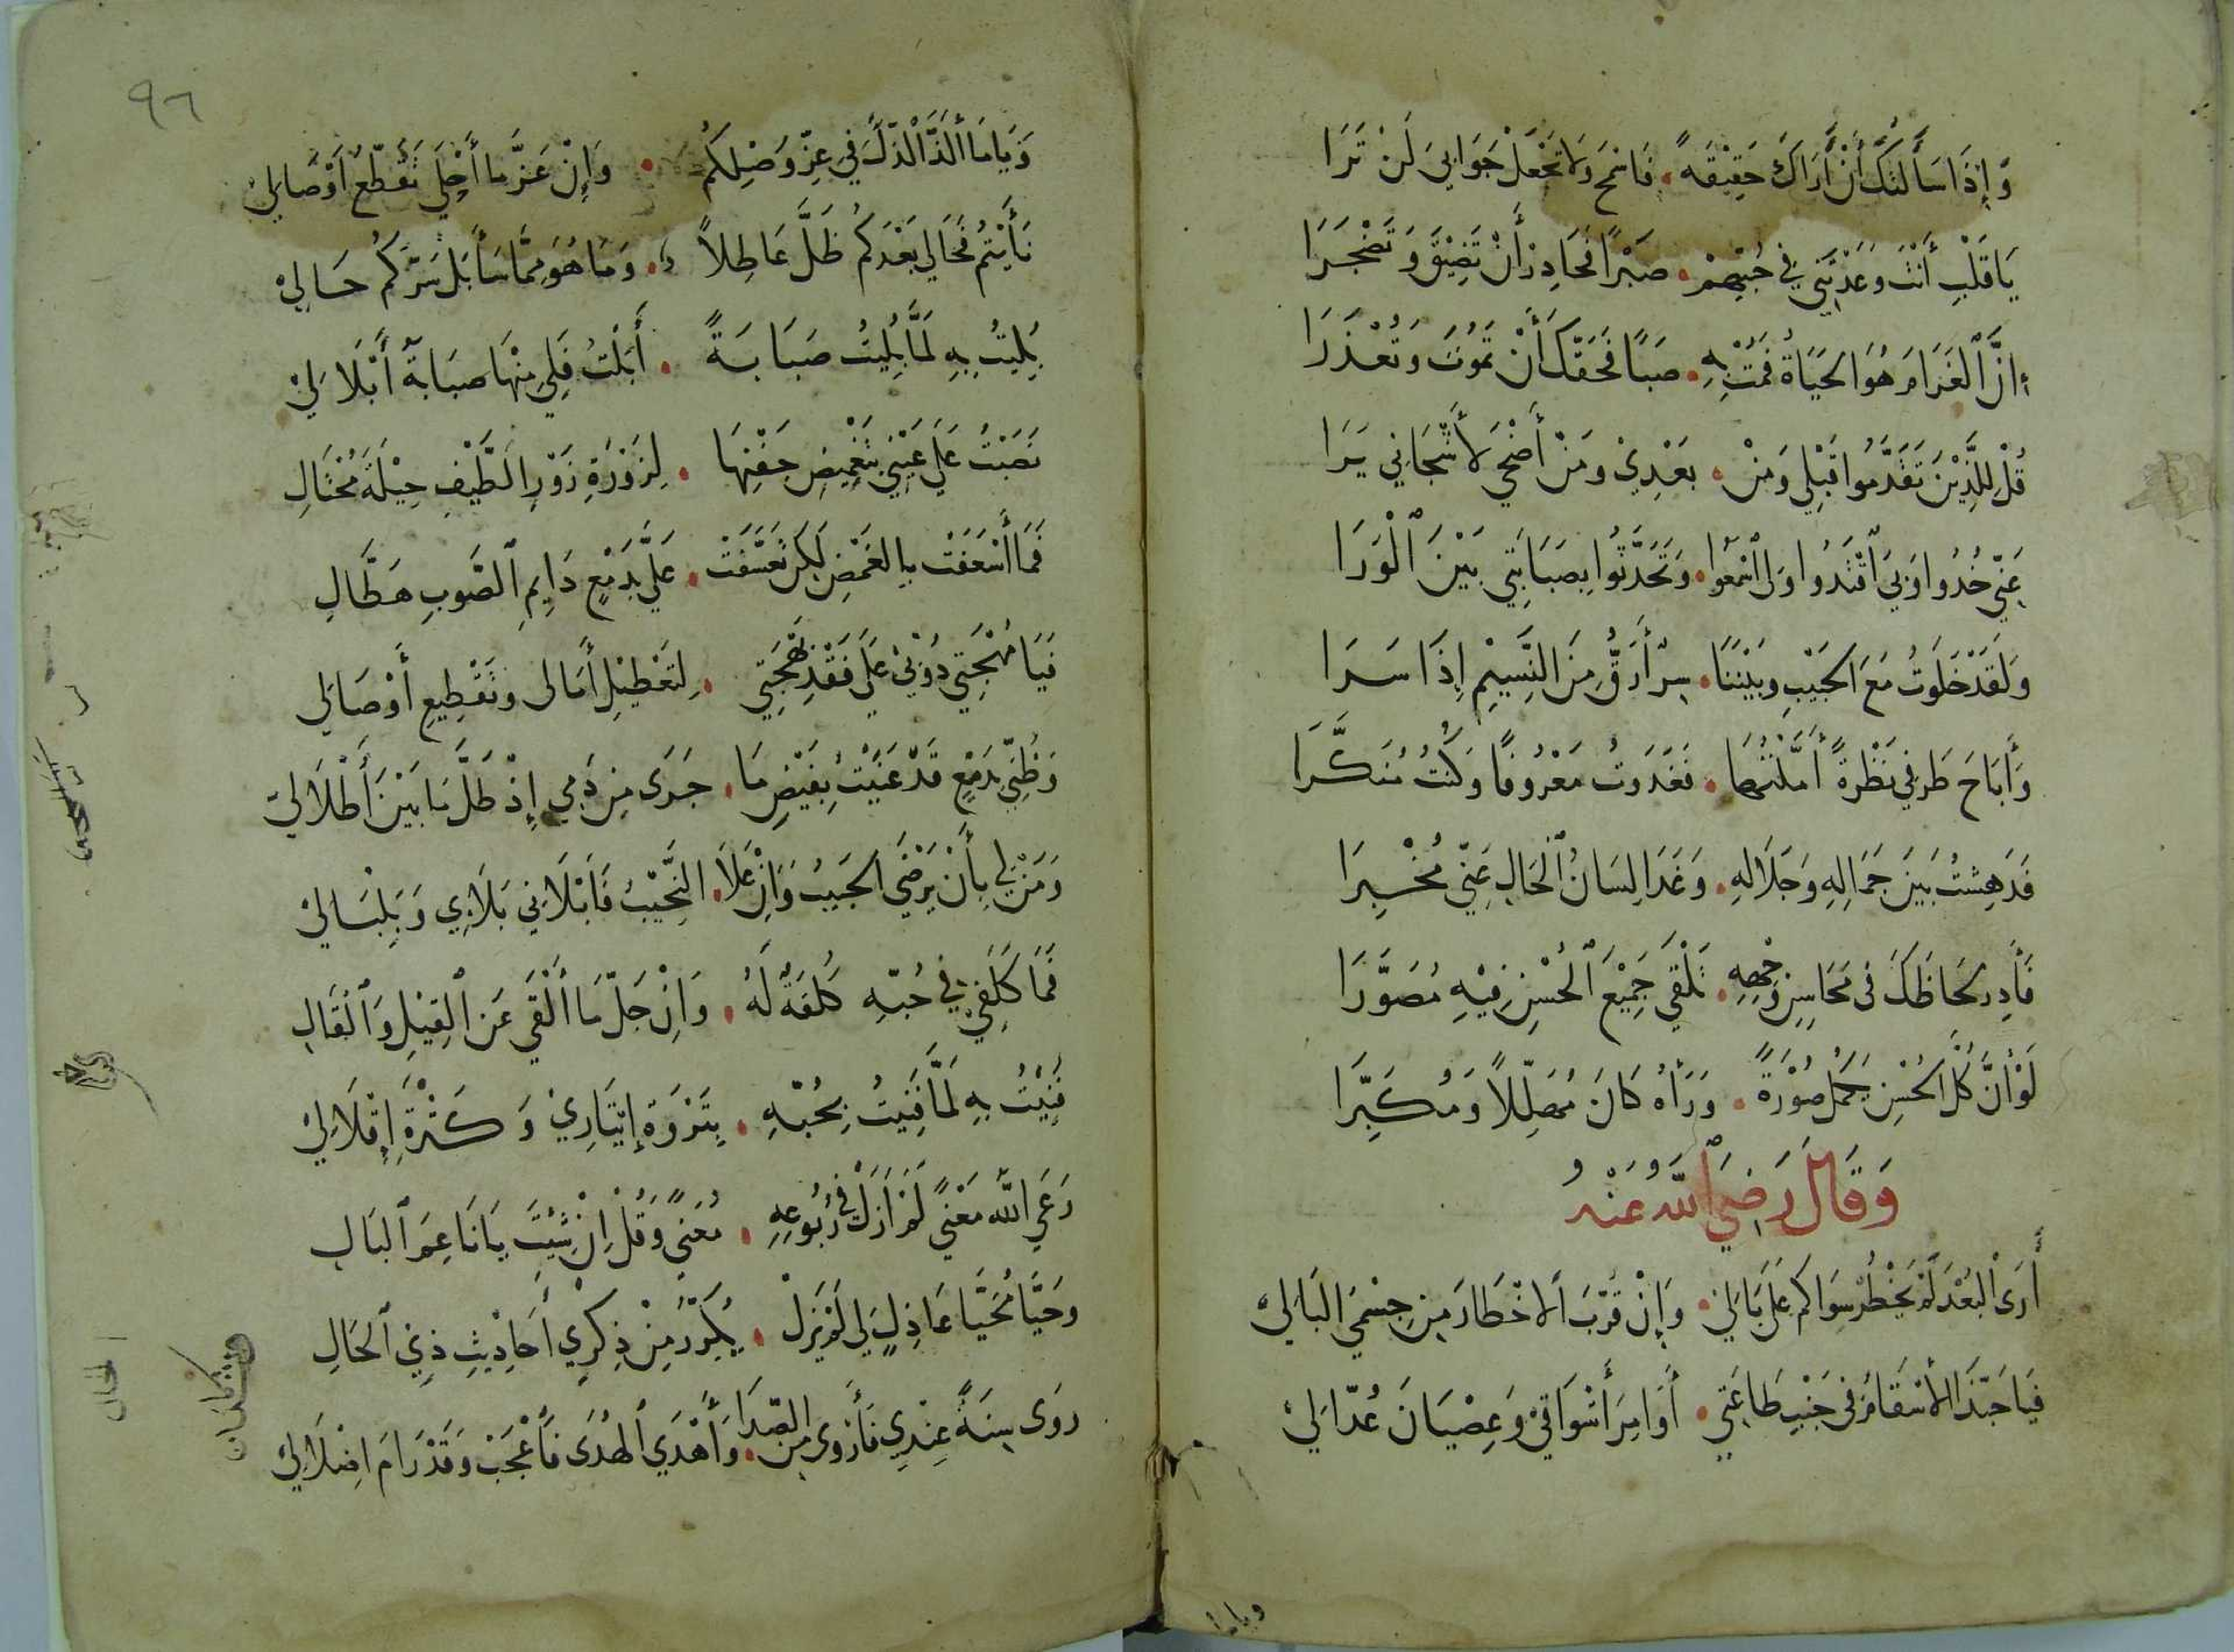 وَإِذَا سَأَلتُكَ أَنْ أَرَاكَ حَقِيْقَةً . فَاسْمَحْ وَلَا تَجْعَلْ جَوَابِيَ لَنْ تَرَا
يَا قَلْبِ أَنْتَ وَعَدْتَنِي فِي حُبِّهِمْ . صَبْرًا فَحَاذِرْ أَنْ تَضِيْقَ وَتَضْجَرَا
إِنَّ ٱلْغَرَامَ هُوَ الحَيَاةُ فَمُتْ بِهِ . صَبًا فَحَقُّكَ أَنْ تَمُوْتَ وَتُعْذَرَا
قُلْ لِلَّذِيْنَ تَقَدَّمُوا قَبْلِي وَمَنْ . بَعْدِيْ وَمَنْ أَضْحَى لأَشْجَانِي يَرَا
عَنِّي خُذُوا وَبِيَ ٱقْتَدُوا وَلِى ٱسْمَعُوا . وَتَحَدَّثُوا بِصَبَابَتِي بَيْنَ ٱلْوَرَا
وَلَقَدْ خَلَوتُ مَعَ الحَبِيْبِ وَبَيْنَنَا . سِرٌّ أَرَقُّ مِنَ النَّسِيْمِ إِذَا سَرَا
وَأَبَاحَ طَرفِي نَظْرَةً أَمَّلْتُهَا . فَغَدَوتُ مَعْرُوفًا وَكُنْتُ مُنَكَّرَا
فَدَهِشتُ بَيْنَ جَمَالِهِ وَجَلَالِهِ . وَغَدَا لِسَانُ ٱلحَالِ عَنِّي مُخْبِرَا
فَأَدِر لحَاظَكَ فى مَحَاسِنِ وَجْهِهِ . تَلْقَى جَمِيْعَ ٱلحُسْنِ فِيْهِ مُصَوَّرَا
لَوْ أَنَّ كُلَّ الحُسْنِ يَكْمُلُ صُوْرَةً . وَرَآهُ كَانَ مُهَلِّلاً وَمُكَبِّرَا
وَقَالَ رَضِيَ ٱللَّهُ عَنْهُ
أَرَىْ البُعْدَ لَمْ يَخْطُرْ سِوَاكُم عَلَى بَالِيْ . وَإِنْ قَرَّبَ الاخْطَارَ مِنْ جِسْمِيَ البَالِيْ
فَيَا حَبَّذَا الأَسْقَامُ فى جَنْبِ طَاعَتِي . أَوَامِرَ أَشْوَاقِيْ وَعِصْيَانَ عُذَّالِيْ
وياما
٩٦
وَيَامَا أَلَذَّ الذُّلَّ فِي عِزِّ وَصْلِكُمْ . وَإِنْ عَزَّ مَا أَحْلَى تَقَطُّعَ أَوْصَالِيْ
نَأَيْتُم فَحَالِي بَعْدَكُم ظَلَّ عَاطِلاً . وَمَا هُوَ مِمَّا سَأَ بَل سَرَّكُم حَالِيْ
بُلِيتُ بِهِ لَمَّا بُلِيتُ صَبَابَةً . أَبَلَّتْ فَلِي مِنْهَا صَبَابَةُ أَبْلَالِيْ
نَصَبْتُ عَلَى عَيْنِيْ بِتَغْمِيضِ جَفْنِهَا . لِزَوْرَةِ زَوْرِ الطَّيْفِ حِيْلَةَ مُحْتَالِ
فَمَا أَسْعَفَتْ بِالغَمْضِ لَكِنْ تَعَسَّفَتْ . عَلَيَّ بِدَمْعٍ دَايِمِ ٱلصَّوبِ هَطَّالِ
فَيَا مُهْجَتِي ذُوْبِيْ عَلَى فَقْدِ بَهْجَتِي . لِتَعْطِيْلِ أَمَالى وتَقْطِيعِ أَوْصَالِي
وَظُنِّي بِدَمْعٍ قَدْ غَنِيْتُ بِفَيْضِ مَا . جَرَى مِنْ دَمِي إِذْ طَلَّ مَا بَيْنَ أَطْلَالِيْ
وَمَنْ لِي بِأَنْ يَرْضَى الحَبِيبُ وَإِنْ عَلَا . النَّحِيْبُ فَأَبْلَانِي بَلَايِي وَبَلْبَالِيْ
فَمَا كَلَفِي فِي حُبِّهِ كُلْفَةٌ لَهُ . وَإِنْ جَلَّ مَا أَلْقَى عَنِ ٱلْقِيْلِ وَٱلْقَالِ
فَنِيْتُ بِهِ لَمَّا فَنِيتُ بِحُبِّهِ . بِثَرْوَةِ إِيْثَارِيْ وَكَثْرَةِ إِقْلَالِيْ
رَعَى اللَّهُ مَغْنًى لَمْ أَزَلْ فِي رُبُوعِهِ . مُعَنًى وَقُلْ إِنْ شِيْتَ يَانَاعِمَ ٱلبَالِ
وحَيَّا مُحَيَّا عَاذِلٍ لِي لَمْ يَزَلْ . يُكَرِّرُ مِنْ ذِكرِي أَحَادِيْثِ ذِي ٱلخَالِ
روَى سِنَةً عِنْدِي فَأَرْوَى مِنَ الصَّدَا . وَأَهْدَي ٱلهُدَى فَاعْجَبْ وَقَدْ رَامَ اضْلَالِيْ